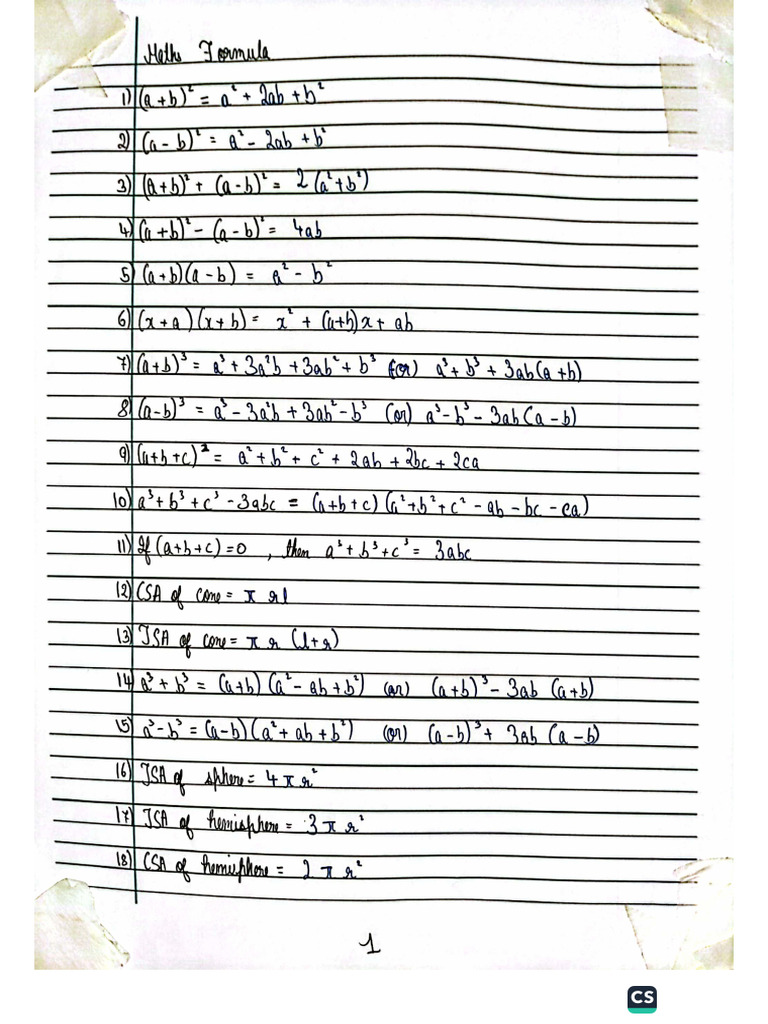 Maths Formula
1) (a+b)² = a² + 2ab + b²
2) (a - b)² = a² - 2ab + b²
3) (a+b)² + (a-b)² = 2 (a²+b²)
4) (a+b)² - (a-b)² = 4ab
5) (a+b)(a-b) = a² - b²
6) (x+a)(x+b) = x² + (a+b)x + ab
7) (a+b)³ = a³ + 3a²b + 3ab² + b³ (or) a³ + b³ + 3ab(a+b)
8) (a-b)³ = a³ - 3a²b + 3ab² - b³ (or) a³ - b³ - 3ab(a-b)
9) (a+b+c)² = a² + b² + c² + 2ab + 2bc + 2ca
10) a³ + b³ + c³ - 3abc = (a+b+c) (a²+b²+c² - ab - bc - ca)
11) If (a+b+c) = 0 , then a³ + b³ + c³ = 3abc
12) CSA of cone = π r l
13) TSA of cone = π r (l+r)
14) a³ + b³ = (a+b) (a² - ab + b²) (or) (a+b)³ - 3ab (a+b)
15) a³ - b³ = (a-b) (a² + ab + b²) (or) (a-b)³ + 3ab (a-b)
16) TSA of sphere = 4 π r²
17) TSA of hemisphere = 3 π r²
18) CSA of hemisphere = 2 π r²
1
CS